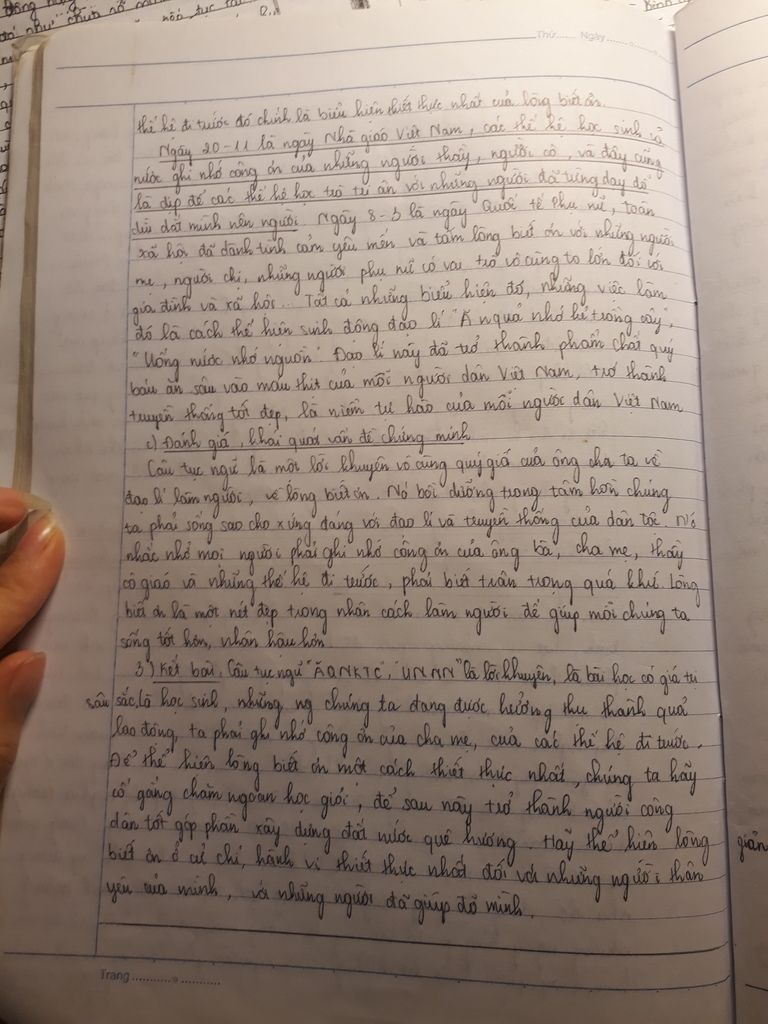 Thứ...... Ngày.......
thế hệ đi trước đó chính là biểu hiện thiết thực nhất của lòng biết ơn.
Ngày 20-11 là ngày Nhà giáo Việt Nam, các thế hệ học sinh cả
nước ghi nhớ công ơn của những người thầy, người cô, và đây cũng
là dịp để các thế hệ học trò tri ân với những người đã từng dạy dỗ
dìu dắt mình nên người. Ngày 8-3 là ngày Quốc tế Phụ nữ, toàn
xã hội đã dành tình cảm yêu mến và tấm lòng biết ơn với những người
mẹ, người chị, những người phụ nữ có vai trò vô cùng to lớn đối với
gia đình và xã hội... Tất cả những biểu hiện đó, những việc làm
đó là cách thể hiện sinh động đạo lí "Ăn quả nhớ kẻ trồng cây",
"Uống nước nhớ nguồn". Đạo lí này đã trở thành phẩm chất quý
báu ăn sâu vào máu thịt của mỗi người dân Việt Nam, trở thành
truyền thống tốt đẹp, là niềm tự hào của mỗi người dân Việt Nam
c) Đánh giá, khái quát vấn đề chứng minh
Câu tục ngữ là một lời khuyên vô cùng quý giá của ông cha ta về
đạo lí làm người, về lòng biết ơn. Nó bồi dưỡng trong tâm hồn chúng
ta phải sống sao cho xứng đáng với đạo lí và truyền thống của dân tộc. Nó
nhắc nhở mọi người phải ghi nhớ công ơn của ông bà, cha mẹ, thầy
cô giáo và những thế hệ đi trước, phải biết trân trọng quá khứ. Lòng
biết ơn là một nét đẹp trong nhân cách làm người để giúp mỗi chúng ta
sống tốt hơn, nhân hậu hơn
3) Kết bài. Câu tục ngữ "ĂQNKTC", "UNNN" là lời khuyên, là bài học có giá trị
sâu sắc. Là học sinh, những ng chúng ta đang được hưởng thụ thành quả
lao động, ta phải ghi nhớ công ơn của cha mẹ, của các thế hệ đi trước.
Để thể hiện lòng biết ơn một cách thiết thực nhất, chúng ta hãy
cố gắng chăm ngoan học giỏi, để sau này trở thành người công
dân tốt góp phần xây dựng đất nước quê hương. Hãy thể hiện lòng
biết ơn ở cử chỉ, hành vi thiết thực nhất đối với những người thân
yêu của mình, với những người đã giúp đỡ mình.
Trang ...........
giản